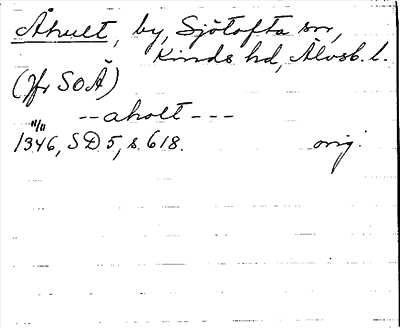 Åhult, by, Sjötofta sn,
Kinds hd, Älvsb. l.
(jfr SOÄ)
-- aholt ---
11/11
1346, SD 5, s 618. orig.